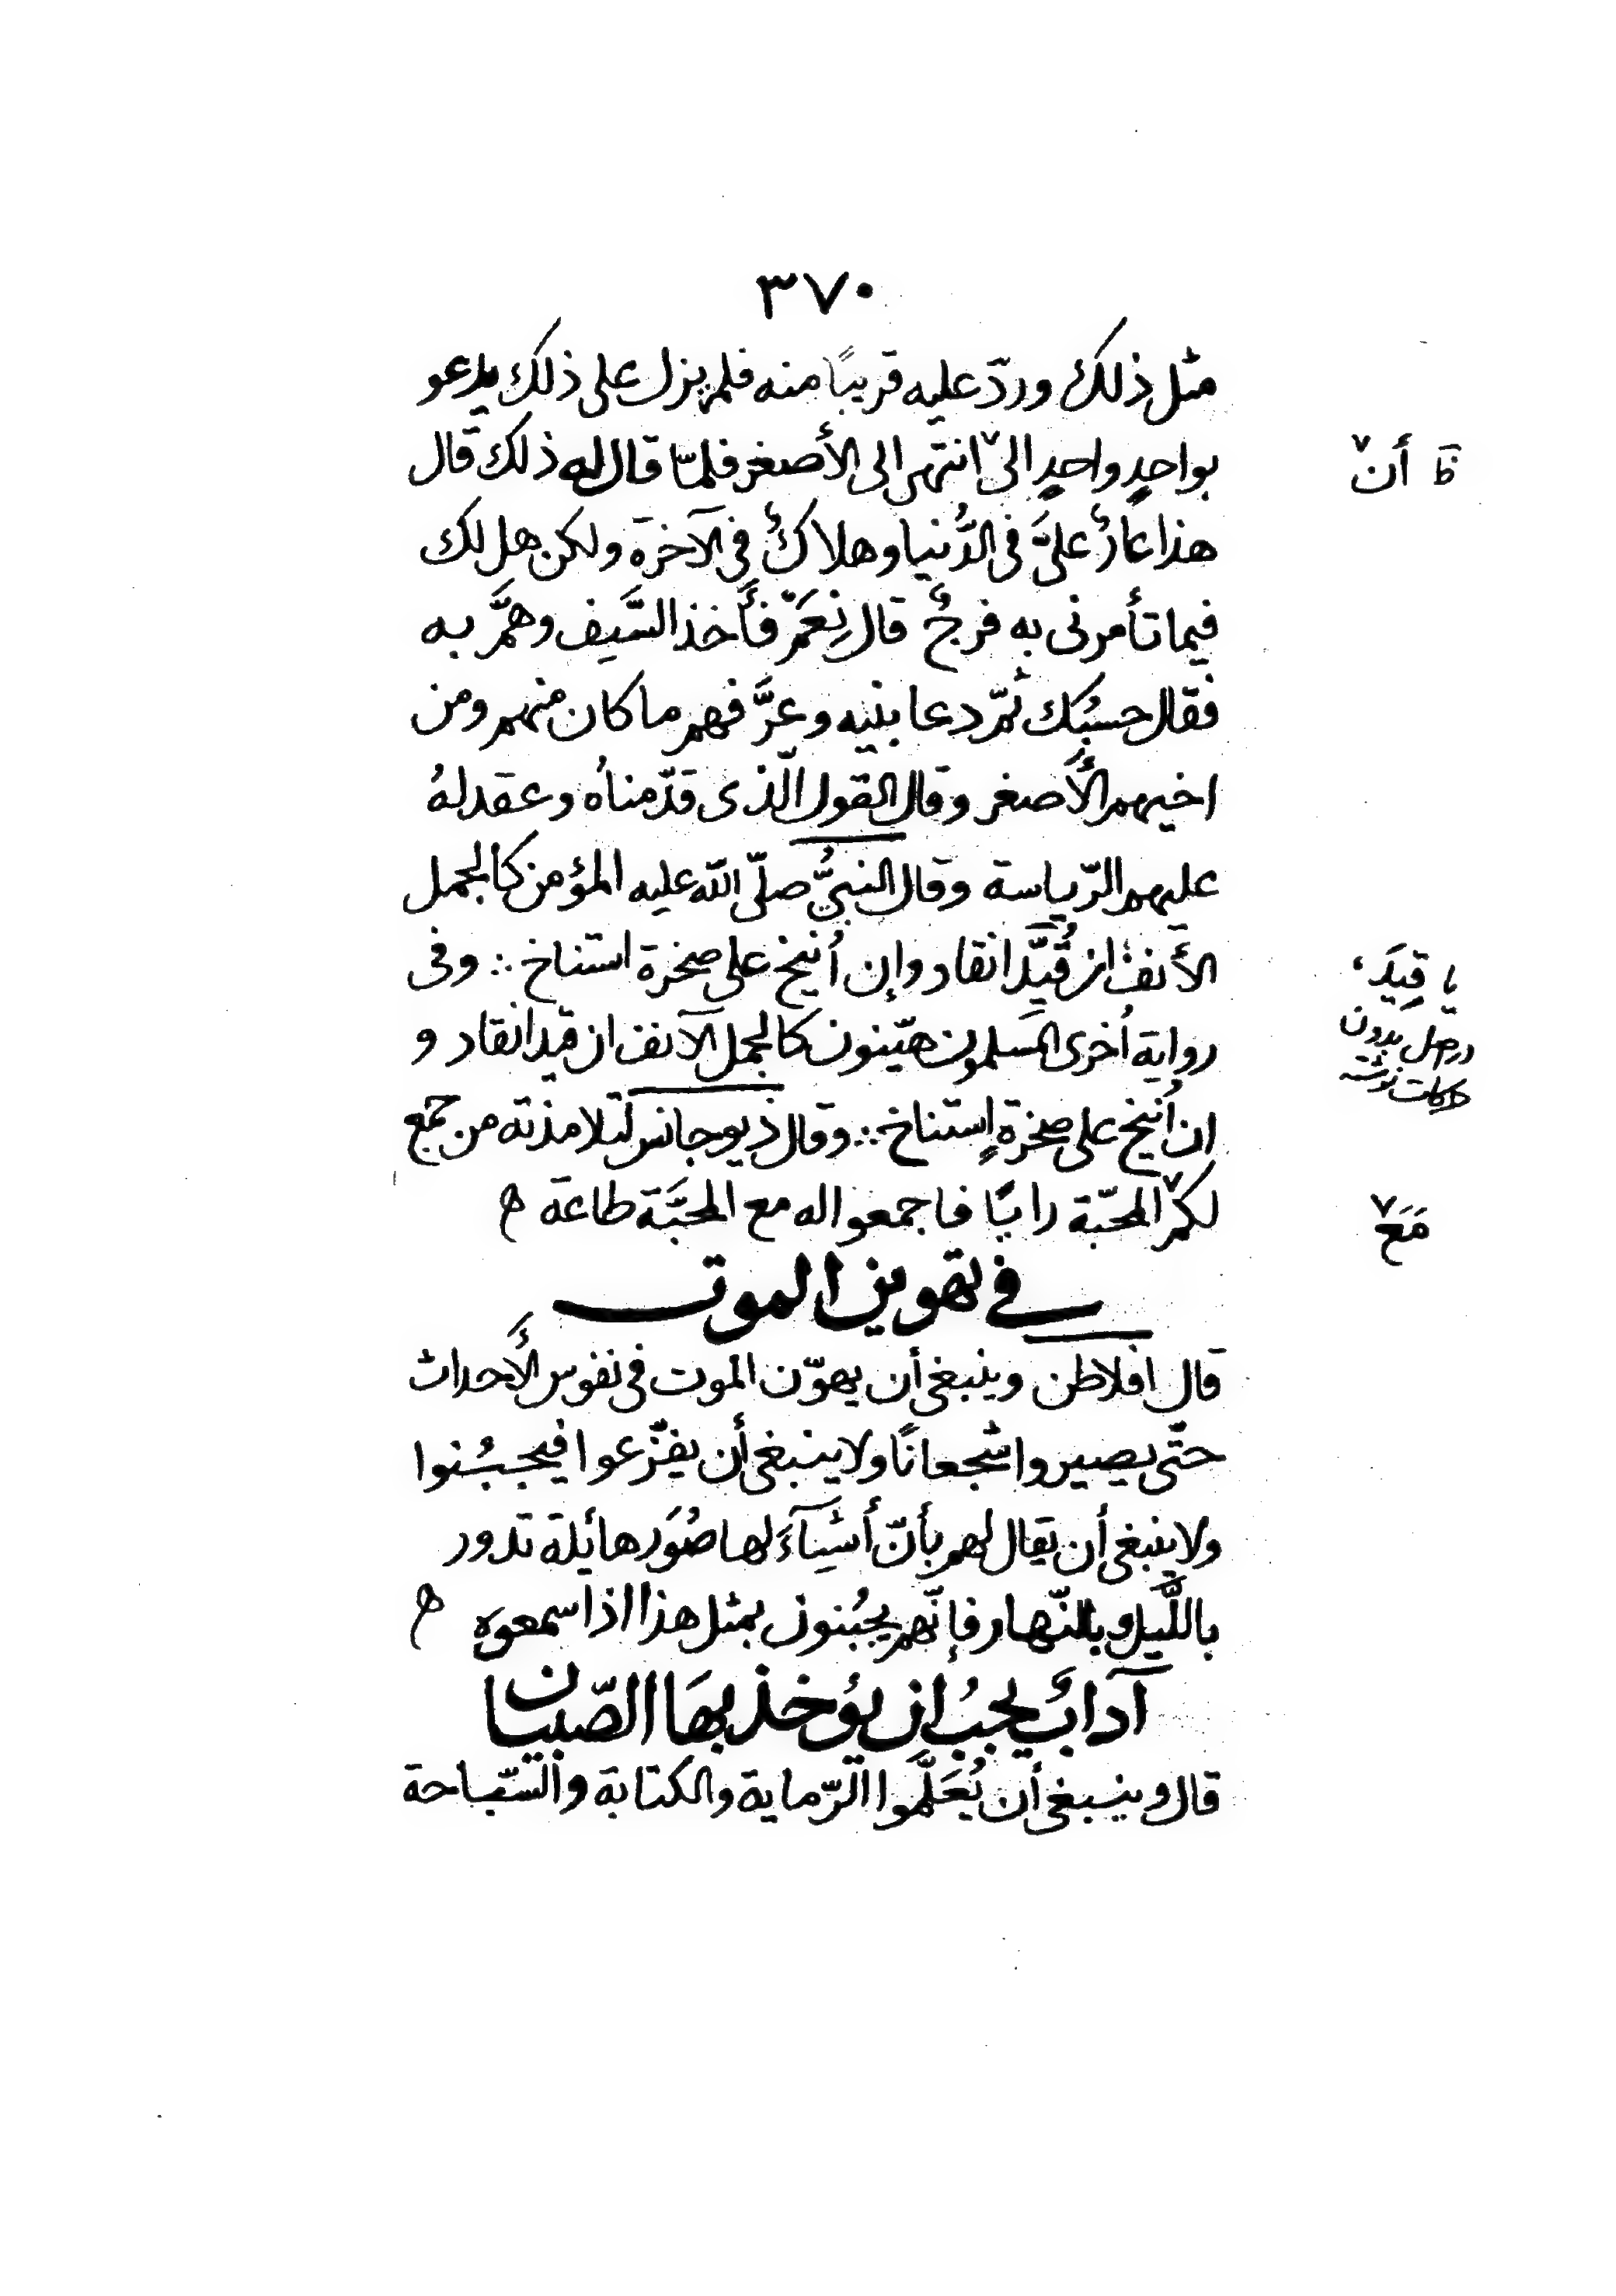 ٣٧٠
مثل ذلك وردّ عليه قريبًا منه فلم يزل على ذلك يدعو
بواحدٍ واحدٍ الى٧ انتهى الى الأصغر فلمّا قال له ذلك قال
ظ أن٧
هذا عارٌ علىَّ فى الدُّنيا وهلاكٌ فى الآخرة ولكن هل لك
فيما تأمرنى به فرجٌ قال نِعَمّ فأَخذ السَّيف وهمَّ به
فقال حسبُك ثمّ دعا بنيه وعرَّفهم ما كان منهم ومن
اخيهم الأَصغر وقال القول الّذى قدّمناُه وعقد لهُ
عليهم الرّياسة وقال النبىُّ صلّى اللّه عليه المؤمن كالجمل
الأنف ان قُيِّدَ انقاد وإن اُنيخ على صخرة استناخ ∴ وفى
يا قِيدَ،
رواية اُخرى المسلمون هيّنون كالجمل الآنف ان قيد انقاد و
در اصل بدون
حركات نوشته
ان اُنيخ على صخرةٍ استناخ ∴ وقال ذيوجانس لتلامذته من جمع
لكم٧ المحبّة رايًا فاجمعوا له مع المحبَّة طاعة
مَعَ٧
فى تهوين الموت
قال افلاطن وينبغى أن يهوّن الموت فى نفوس الأَحداث
حتّى يصيروا شجعانًا ولا ينبغى أن يفزّعوا فيجبُنوا
ولا ينبغى أن يقال لهم بأنّ أشيآءَ لها صُوَر هائلة تدور
باللَّيل وبالنّهار فإنّهم يجبُنون بمثل هذا اذا سمعوه
آدابٌ يجبُ ان يؤخذ بهَا الصّبيان
قال وينبغى أن يُعَلَّموا الرّماية والكتابة والسّباحة